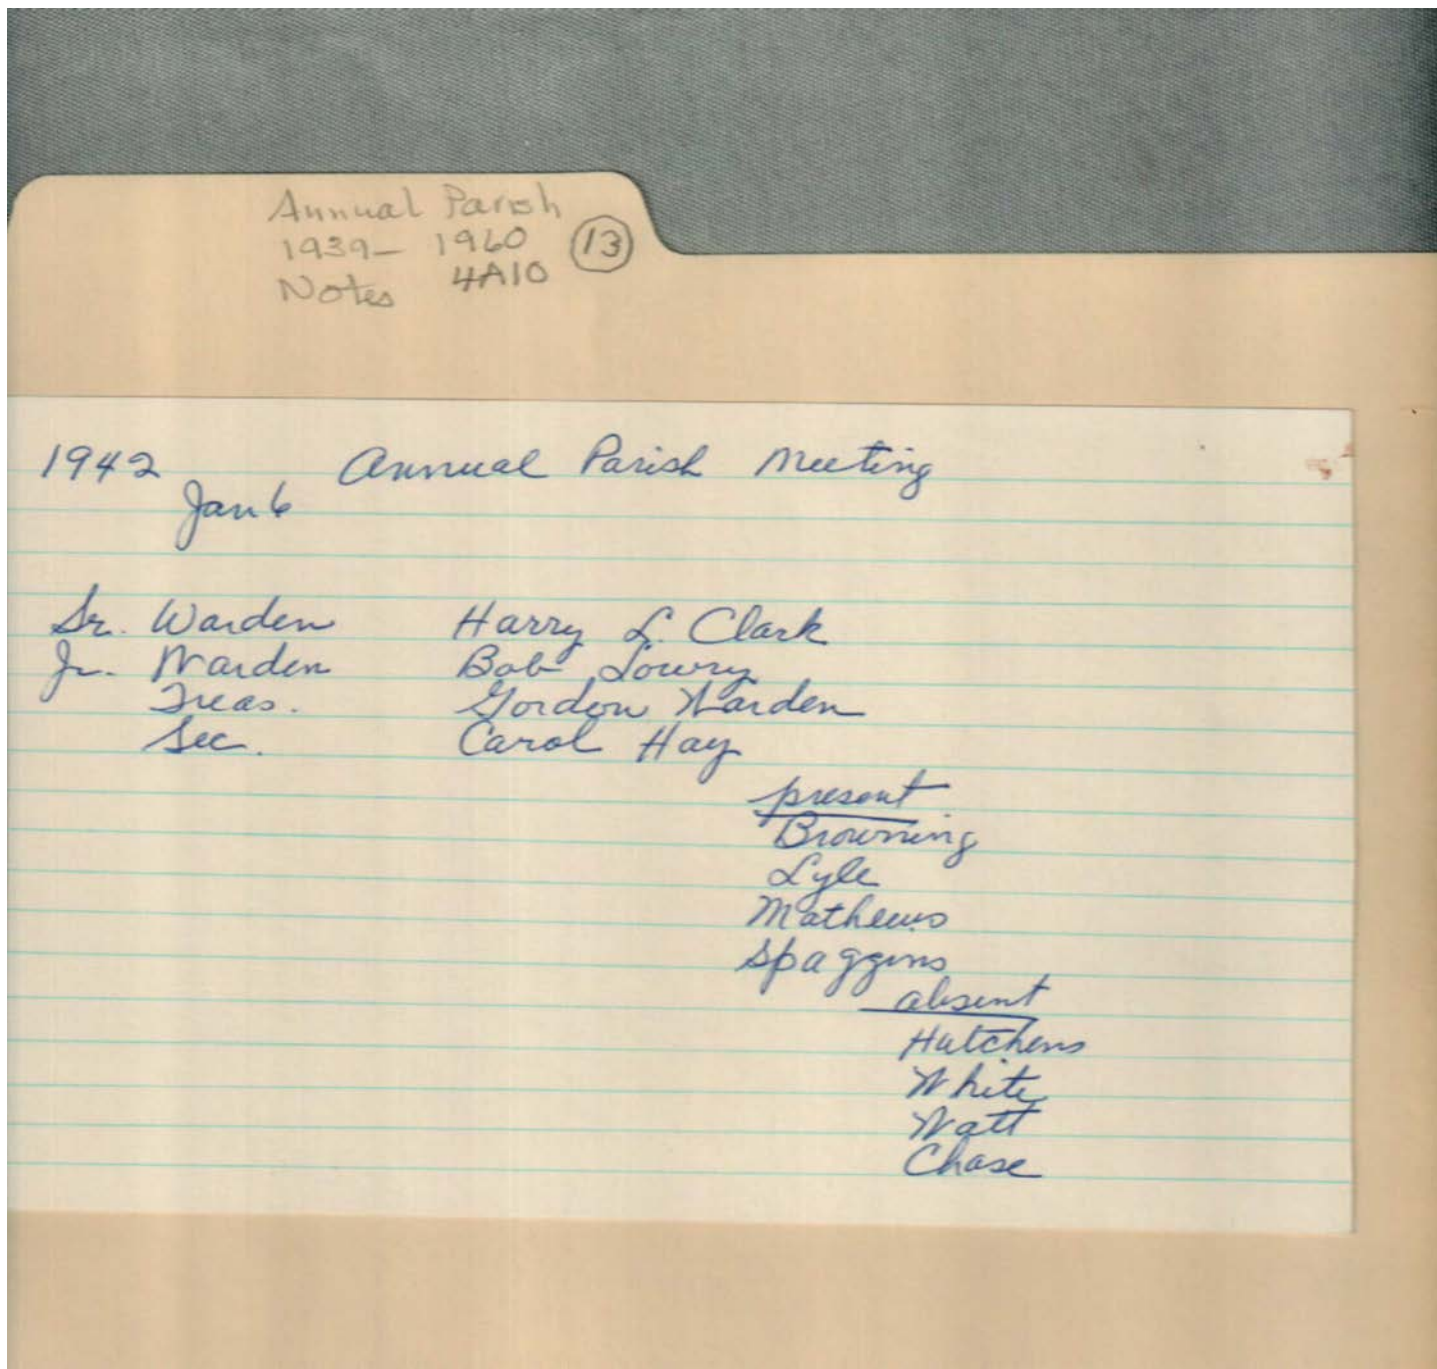 Annual Parish
1939- 1960 (13)
Notes 4A10
1942 Annual Parish Meeting
Jan 6
Sr. Warden Harry L. Clark
Jr. Warden Bob Lowry
Treas. Gordon Warden
Sec. Carol Hay
present
Browning
Lyle
Mathews
Spaggins
absent
Hutchens
White
Watt
Chase